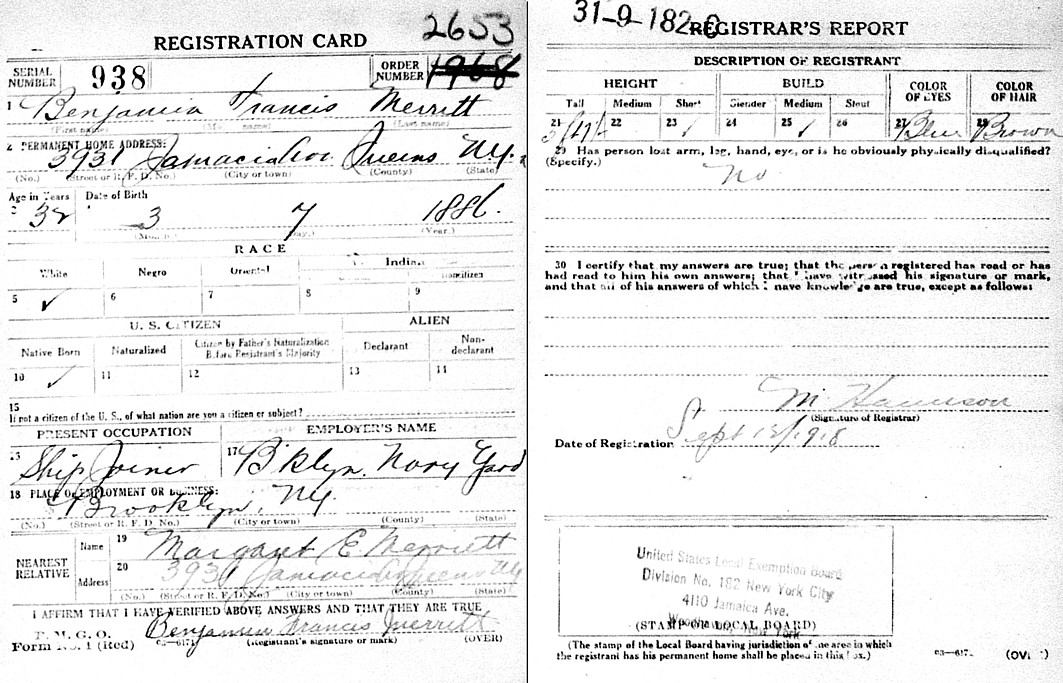 REGISTRATION CARD 2653
SERIAL NUMBER 938 ORDER NUMBER 1968
1 Benjamin Francis Merritt
(First name) (Middle name) (Last name)
2 PERMANENT HOME ADDRESS:
3931 Jamacia Av. Queens N.Y.
(No.) (Street or R. F. D. No.) (City or town) (County) (State)
Age in Years Date of Birth
3 32 4 3 7 1886.
(Month.) (Day.) (Year.)
RACE
White Negro Oriental Indian
Noncitizen
5 ✓ 6 7 8 9
U. S. CITIZEN ALIEN
Native Born Naturalized Citizen by Father's Naturalization Before Registrant's Majority Declarant Non-declarant
10 ✓ 11 12 13 14
15
If not a citizen of the U. S., of what nation are you a citizen or subject?
PRESENT OCCUPATION EMPLOYER'S NAME
16 Ship Joiner 17 B'klyn. Navy Yard
18 PLACE OF EMPLOYMENT OR BUSINESS:
Brooklyn, NY.
(No.) (Street or R. F. D. No.) (City or town) (County) (State)
NEAREST RELATIVE
Name 19 Margaret E. Merritt
Address 20 3931 Jamacia Av Queens NY
(No.) (Street or R. F. D. No.) (City or town) (County) (State)
I AFFIRM THAT I HAVE VERIFIED ABOVE ANSWERS AND THAT THEY ARE TRUE
P. M. G. O.
Form No. 1 (Red) 03—6171 Benjamin Francis Merritt
(Registrant's signature or mark) (OVER)
31-9-182-C
REGISTRAR'S REPORT
DESCRIPTION OF REGISTRANT
HEIGHT BUILD COLOR OF EYES COLOR OF HAIR
Tall Medium Short Slender Medium Stout
21 22 23 ✓ 24 25 ✓ 26 27 Blue 28 Brown
29 Has person lost arm, leg, hand, eye, or is he obviously physically disqualified?
(Specify.)
No
30 I certify that my answers are true; that the person registered has read or has
had read to him his own answers; that I have witnessed his signature or mark,
and that all of his answers of which I have knowledge are true, except as follows:
M
(Signature of Registrar)
Date of Registration Sept 12/1918
United States Local Exemption Board
Division No. 182 New York City
4110 Jamaica Ave.
Woodhaven, New York
(STAMP OF LOCAL BOARD)
(The stamp of the Local Board having jurisdiction of the area in which
the registrant has his permanent home shall be placed in this box.)
03—6171 (OVER)